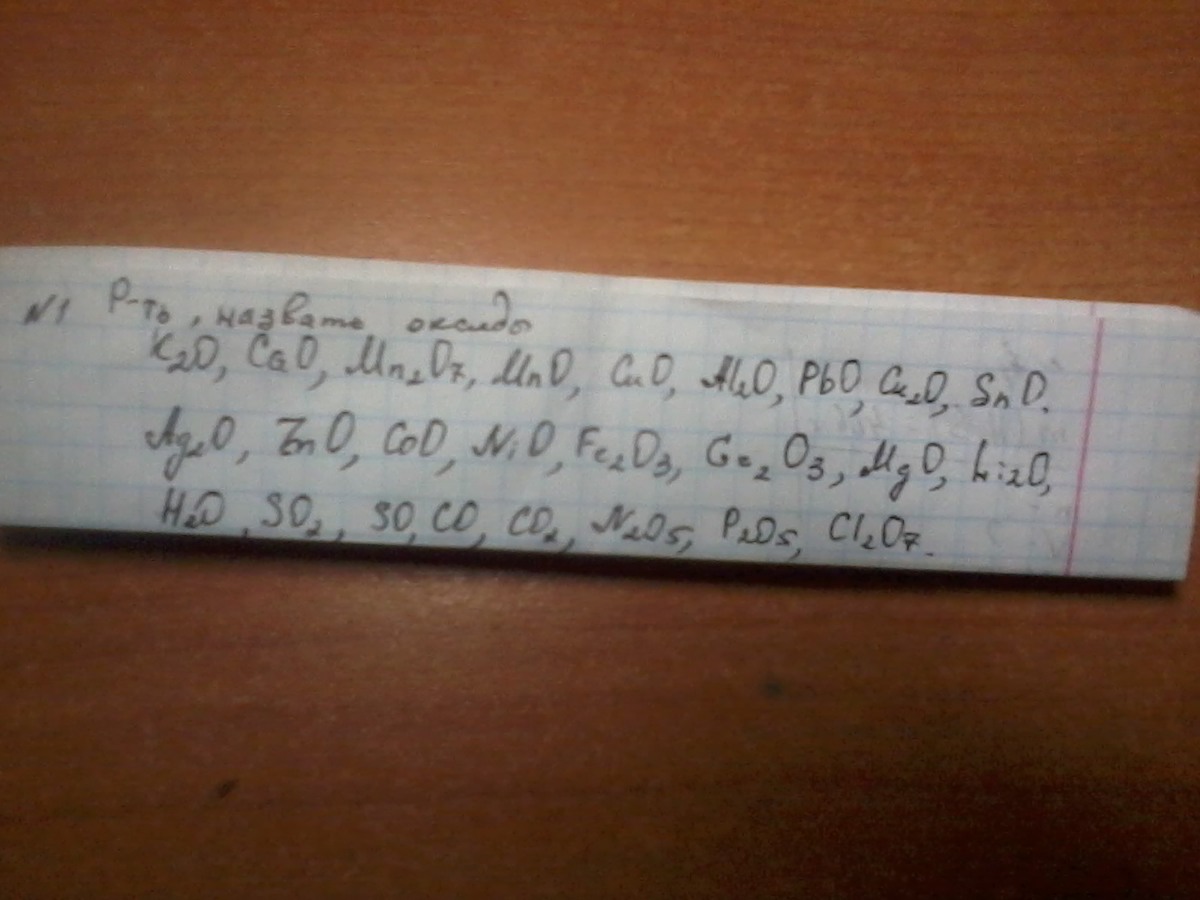 N1 Р-ть, назвать оксиды
K₂O, CaO, Mn₂O₇, MnO, CuO, Al₂O, PbO, Cu₂O, SnO.
Ag₂O, ZnO, CoO, NiO, Fe₂O₃, Ge₂O₃, MgO, Li₂O,
H₂O, SO₂, SO, CO, CO₂, N₂O₅, P₂O₅, Cl₂O₇.